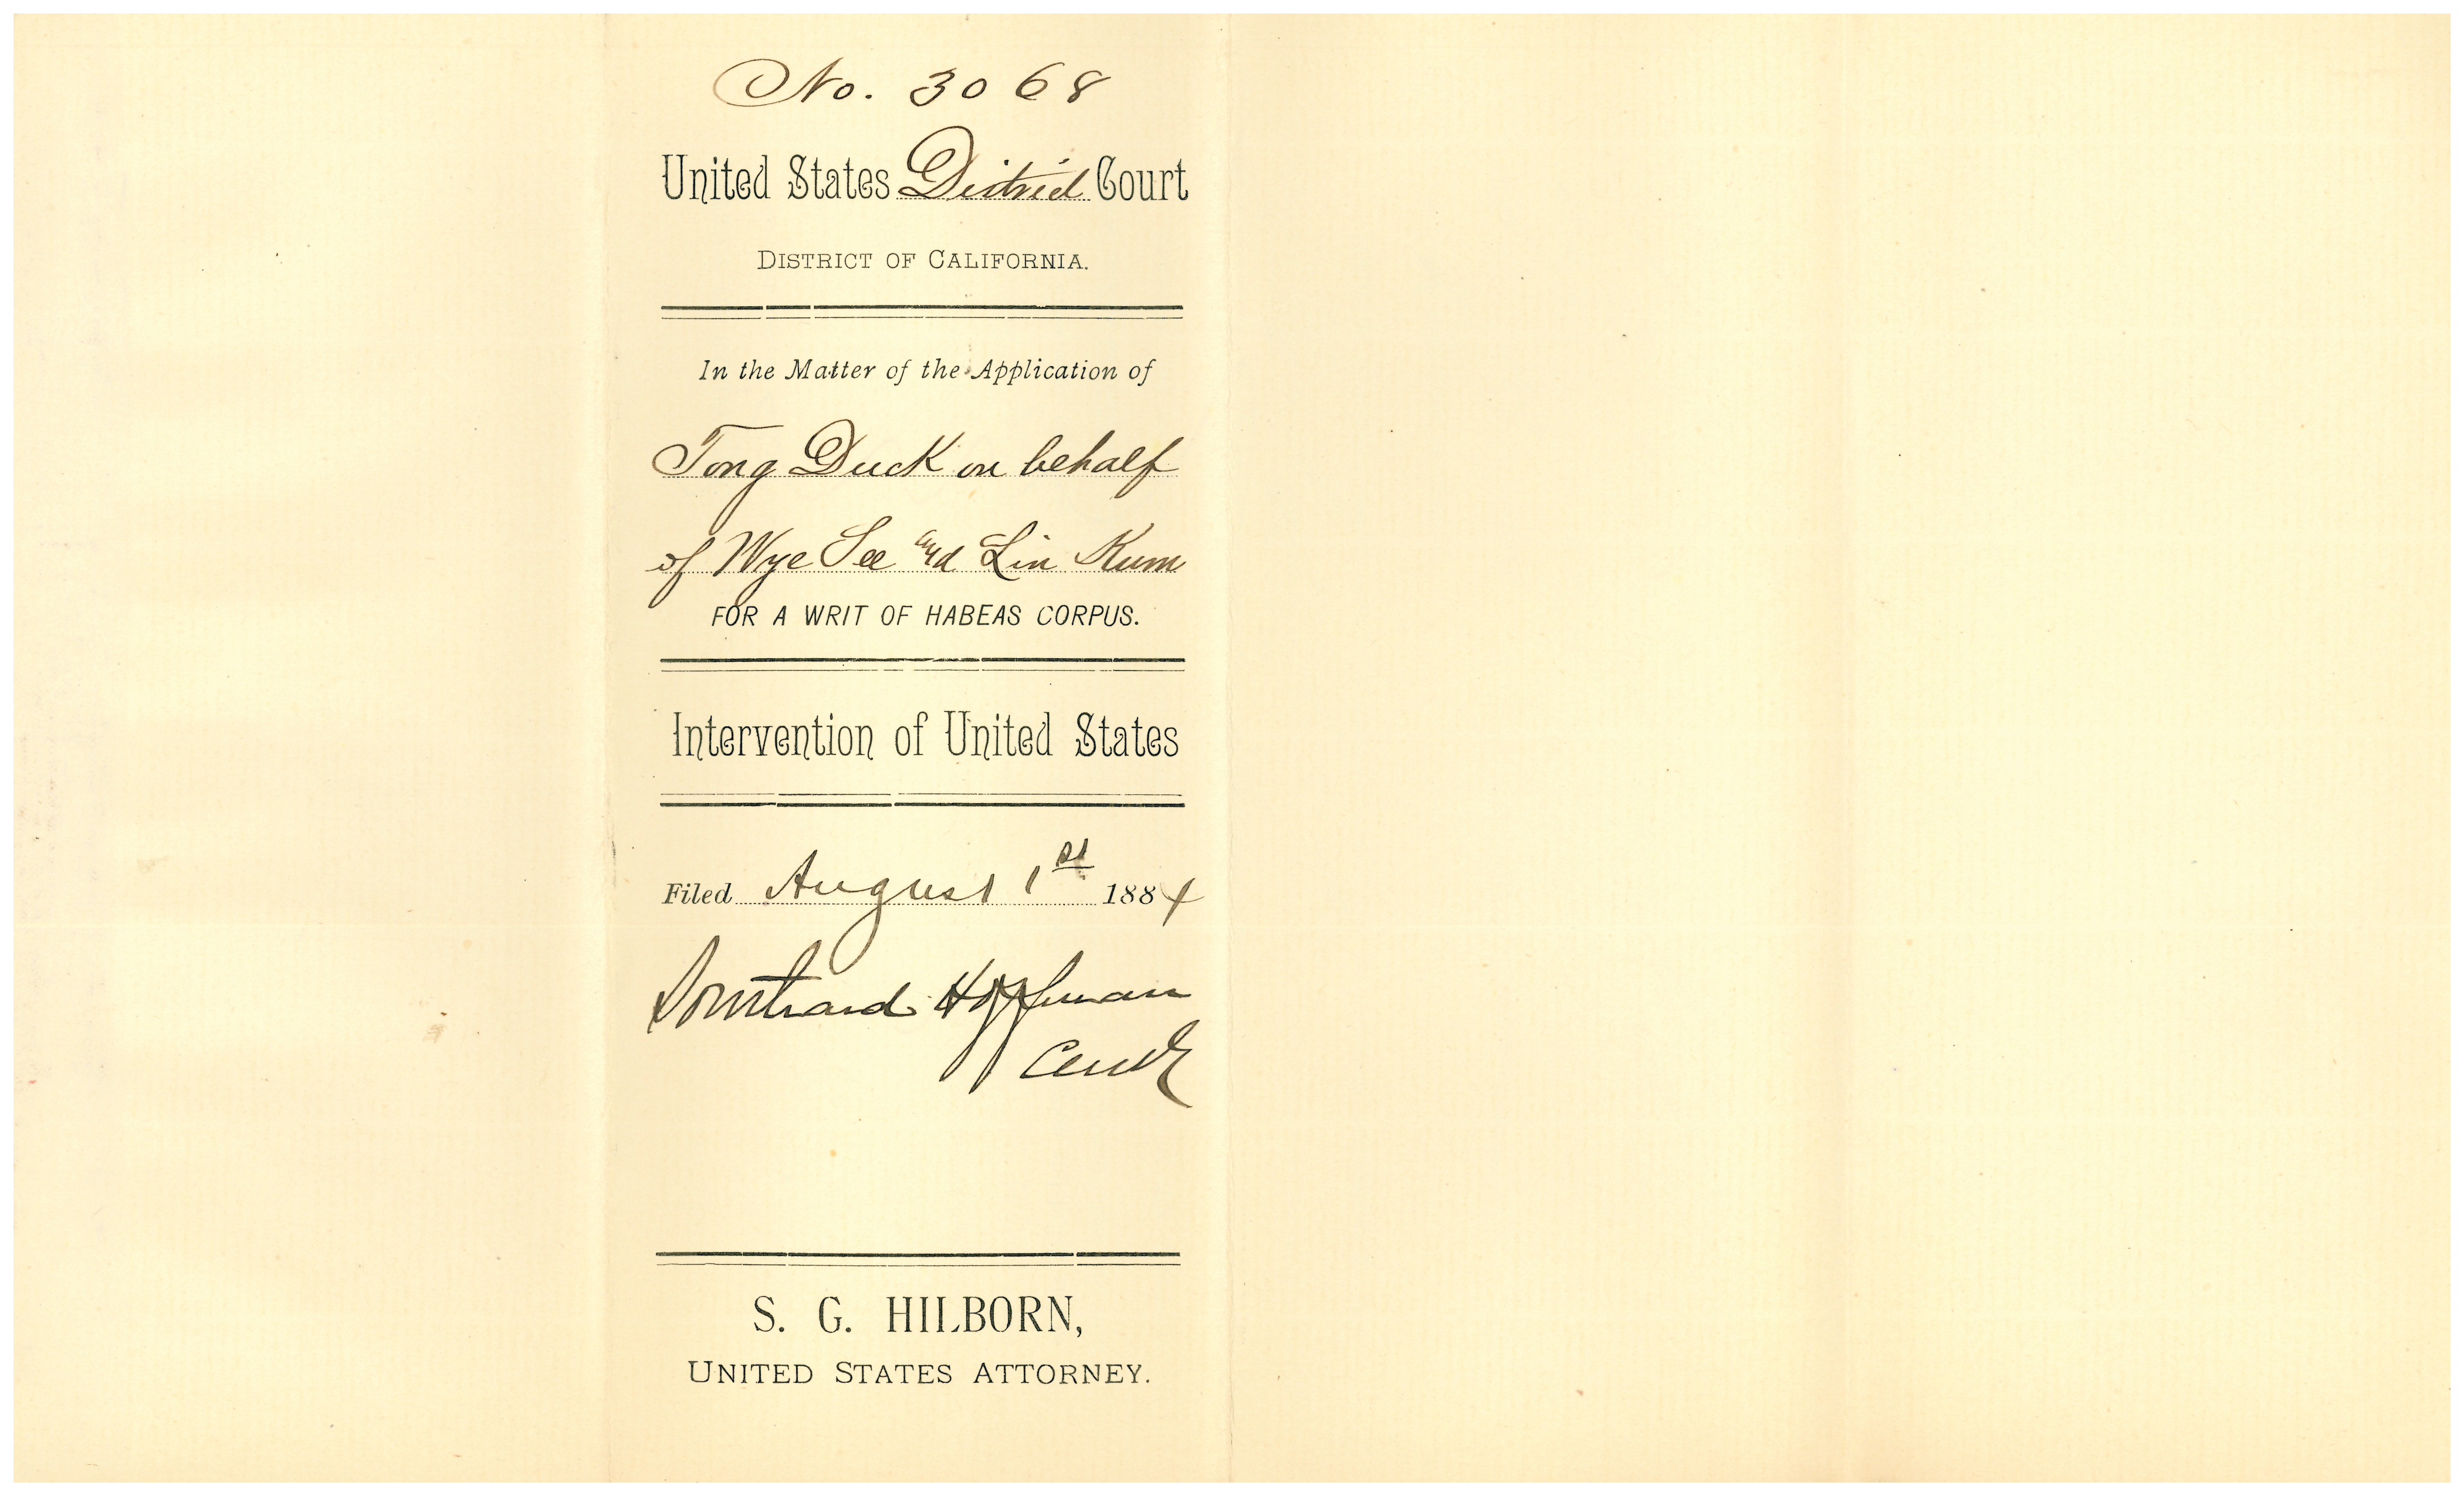 No. 3068
United States District Court
DISTRICT OF CALIFORNIA.
In the Matter of the Application of
Tong Duck on behalf
of Wye See and Lin Kum
FOR A WRIT OF HABEAS CORPUS.
Intervention of United States
Filed August 1st 1884
Southard Hoffman
Clerk
S. G. HILBORN,
UNITED STATES ATTORNEY.